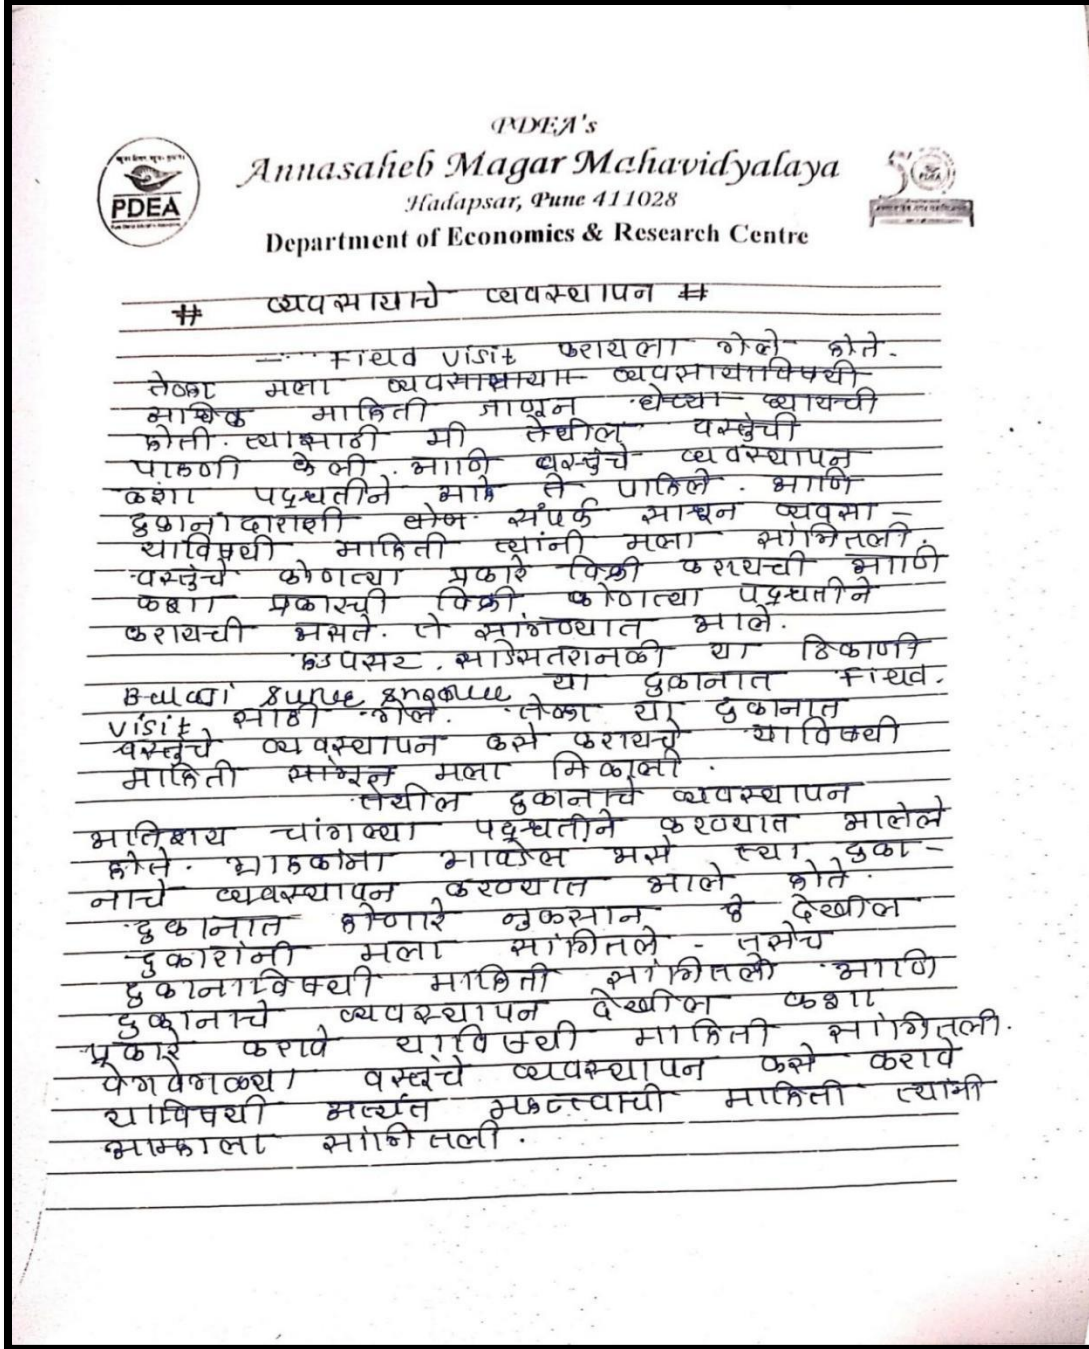 PDEA's
Annasaheb Magar Mahavidyalaya
Hadapsar, Pune 411028
Department of Economics & Research Centre
PDEA
# व्यवसायाचे व्यवस्थापन #
— Field visit करायला गेले होते.
तेव्हा मला व्यवसायाविषयी
अधिक माहिती जाणून घ्यायची
होती. त्यासाठी मी तेथील वस्तुंची
पाहणी केली. आणि वस्तुंचे व्यवस्थापन
कशा पद्धतीने आहे ते पाहिले. आणि
दुकानांदाराशी संपर्क साधून व्यवसा-
याविषयी माहिती त्यांनी मला सांगितली.
वस्तुंचे कोणत्या प्रकारे विक्री करायची आणि
कशा प्रकारची विक्री कोणत्या पद्धतीने
करायची असते. ते सांगण्यात आले.
हडपसर. साडेसतरानळी या ठिकाणी
या दुकानात Field.
visit साठी गेले. तेव्हा या दुकानात
वस्तुंचे व्यवस्थापन कसे करायचे याविषयी
माहिती मला मिळाली.
तेथील दुकानाचे व्यवस्थापन
अतिशय चांगल्या पद्धतीने करण्यात आलेले
होते. ग्राहकांना आवडेल असे त्या दुका-
नाचे व्यवस्थापन करण्यात आले होते.
दुकानात होणारे नुकसान हे देखील
दुकारांनी मला सांगितले - तसेच
दुकानाविषयी माहिती सांगितली आणि
दुकानाचे व्यवस्थापन देखील कशा
प्रकारे करावे याविषयी माहिती सांगितली.
वेगवेगळ्या वस्तुंचे व्यवस्थापन कसे करावे
याविषयी अत्यंत महत्त्वाची माहिती त्यांनी
आम्हाला सांगितली.